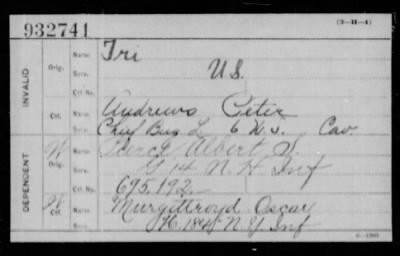 932741
(3-H-4)
INVALID
Orig. Name Tri
Serv. U.S.
Ctf. No.
Ctf. Name Andrews Peter
Serv. Chief Bug L 6 U.S. Cav.
DEPENDENT
W Orig. Name Pierce Albert S.
Serv. G 14 N.H. Inf
Ctf. No. 695,192
W Ctf. Name Murgittroyd Oscar
Serv. N.Y. Inf